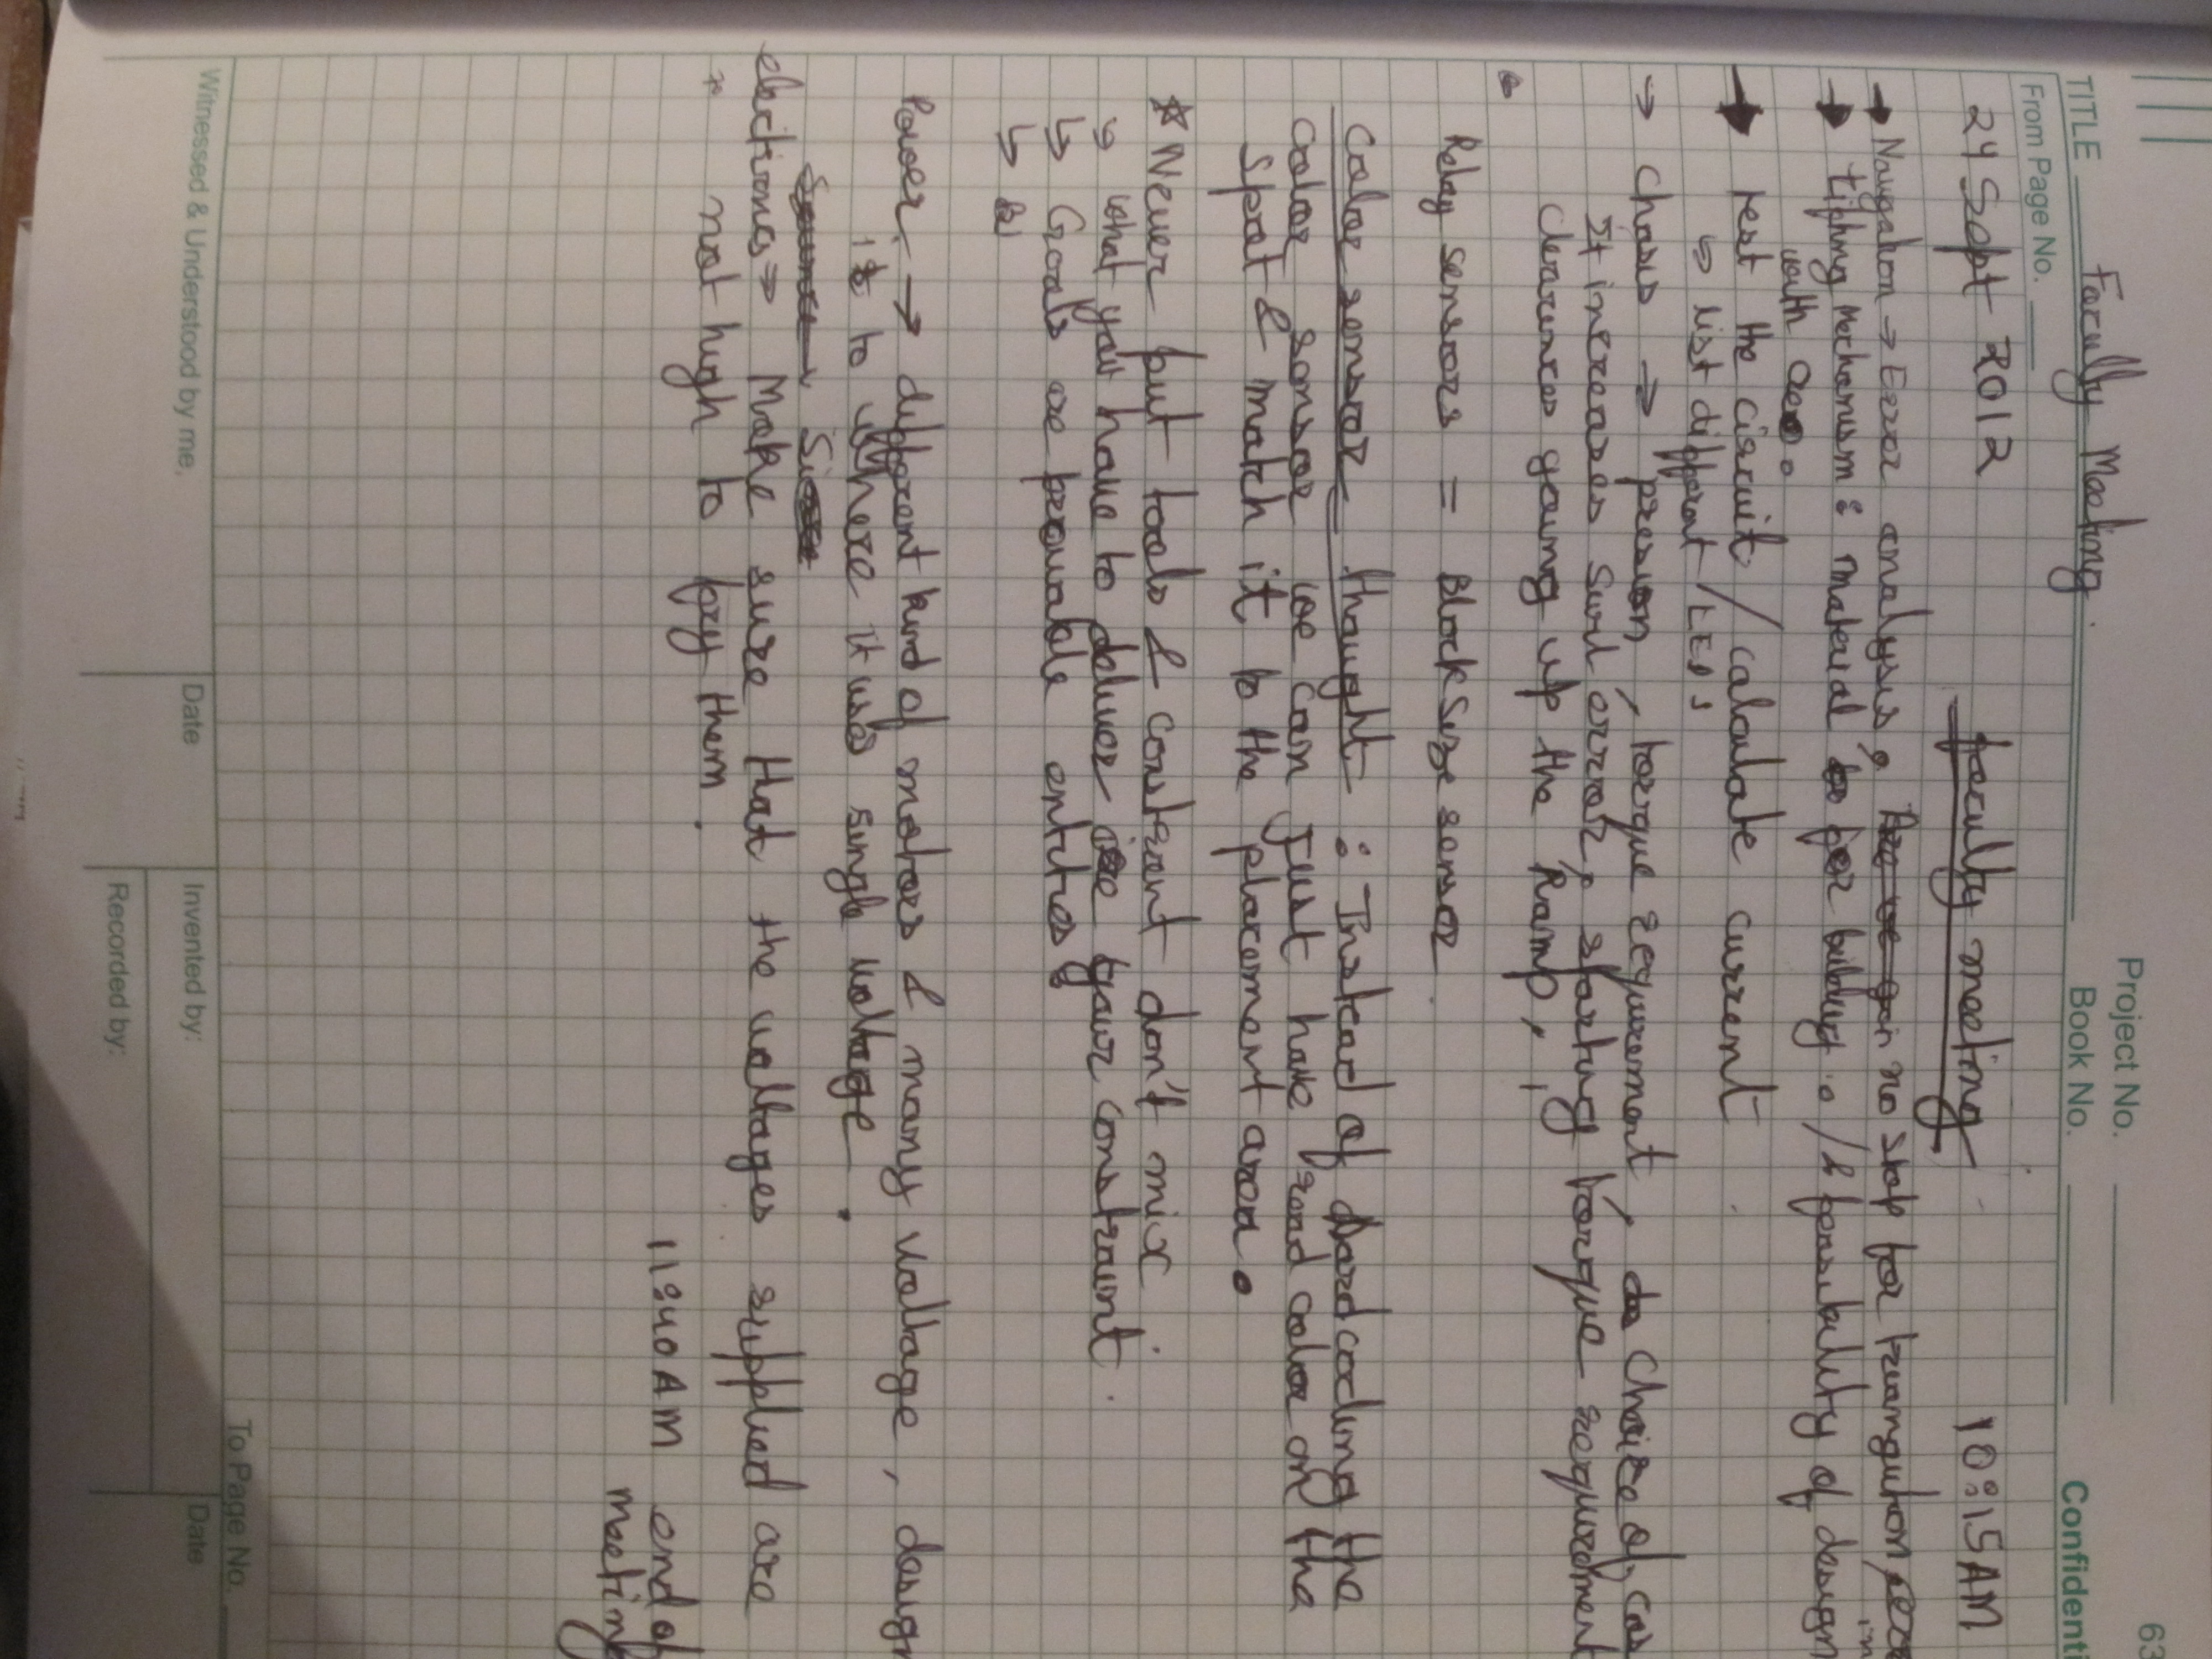 63
Project No.
TITLE Faculty Meeting.
Book No.
Confidenti
From Page No.
24 Sept 2012 faculty meeting 10:15AM
→ Navigation → Error analysis, no stop for triangution,
in
→ Mechanism: material for building. / & feasibility of design
with
→ test the circuit / calculate current
↳ list different LEDs
→ Chasis → , torque requirement, Choice of
It increases error, starting torque requirement
clearences going up the Ramp,
Relay sensors = Block Size sensor
color sensor thought : Instead of Hardcoding the
color sensor we can just have read color on the
spot & match it to the placement area.
* Never put tools & constraint don't mix.
↳ what you have to deliver your constraint.
↳ Goals are provable entities
↳
Power. → different kind of motors & many voltage, design
it to where it uses single voltage.
electronics ⇒ Make sure that the voltages supplied are
* not high to fry them.
11:40AM end of
meeting
To Page No.
Witnessed & Understood by me,
Date
Invented by:
Date
Recorded by: